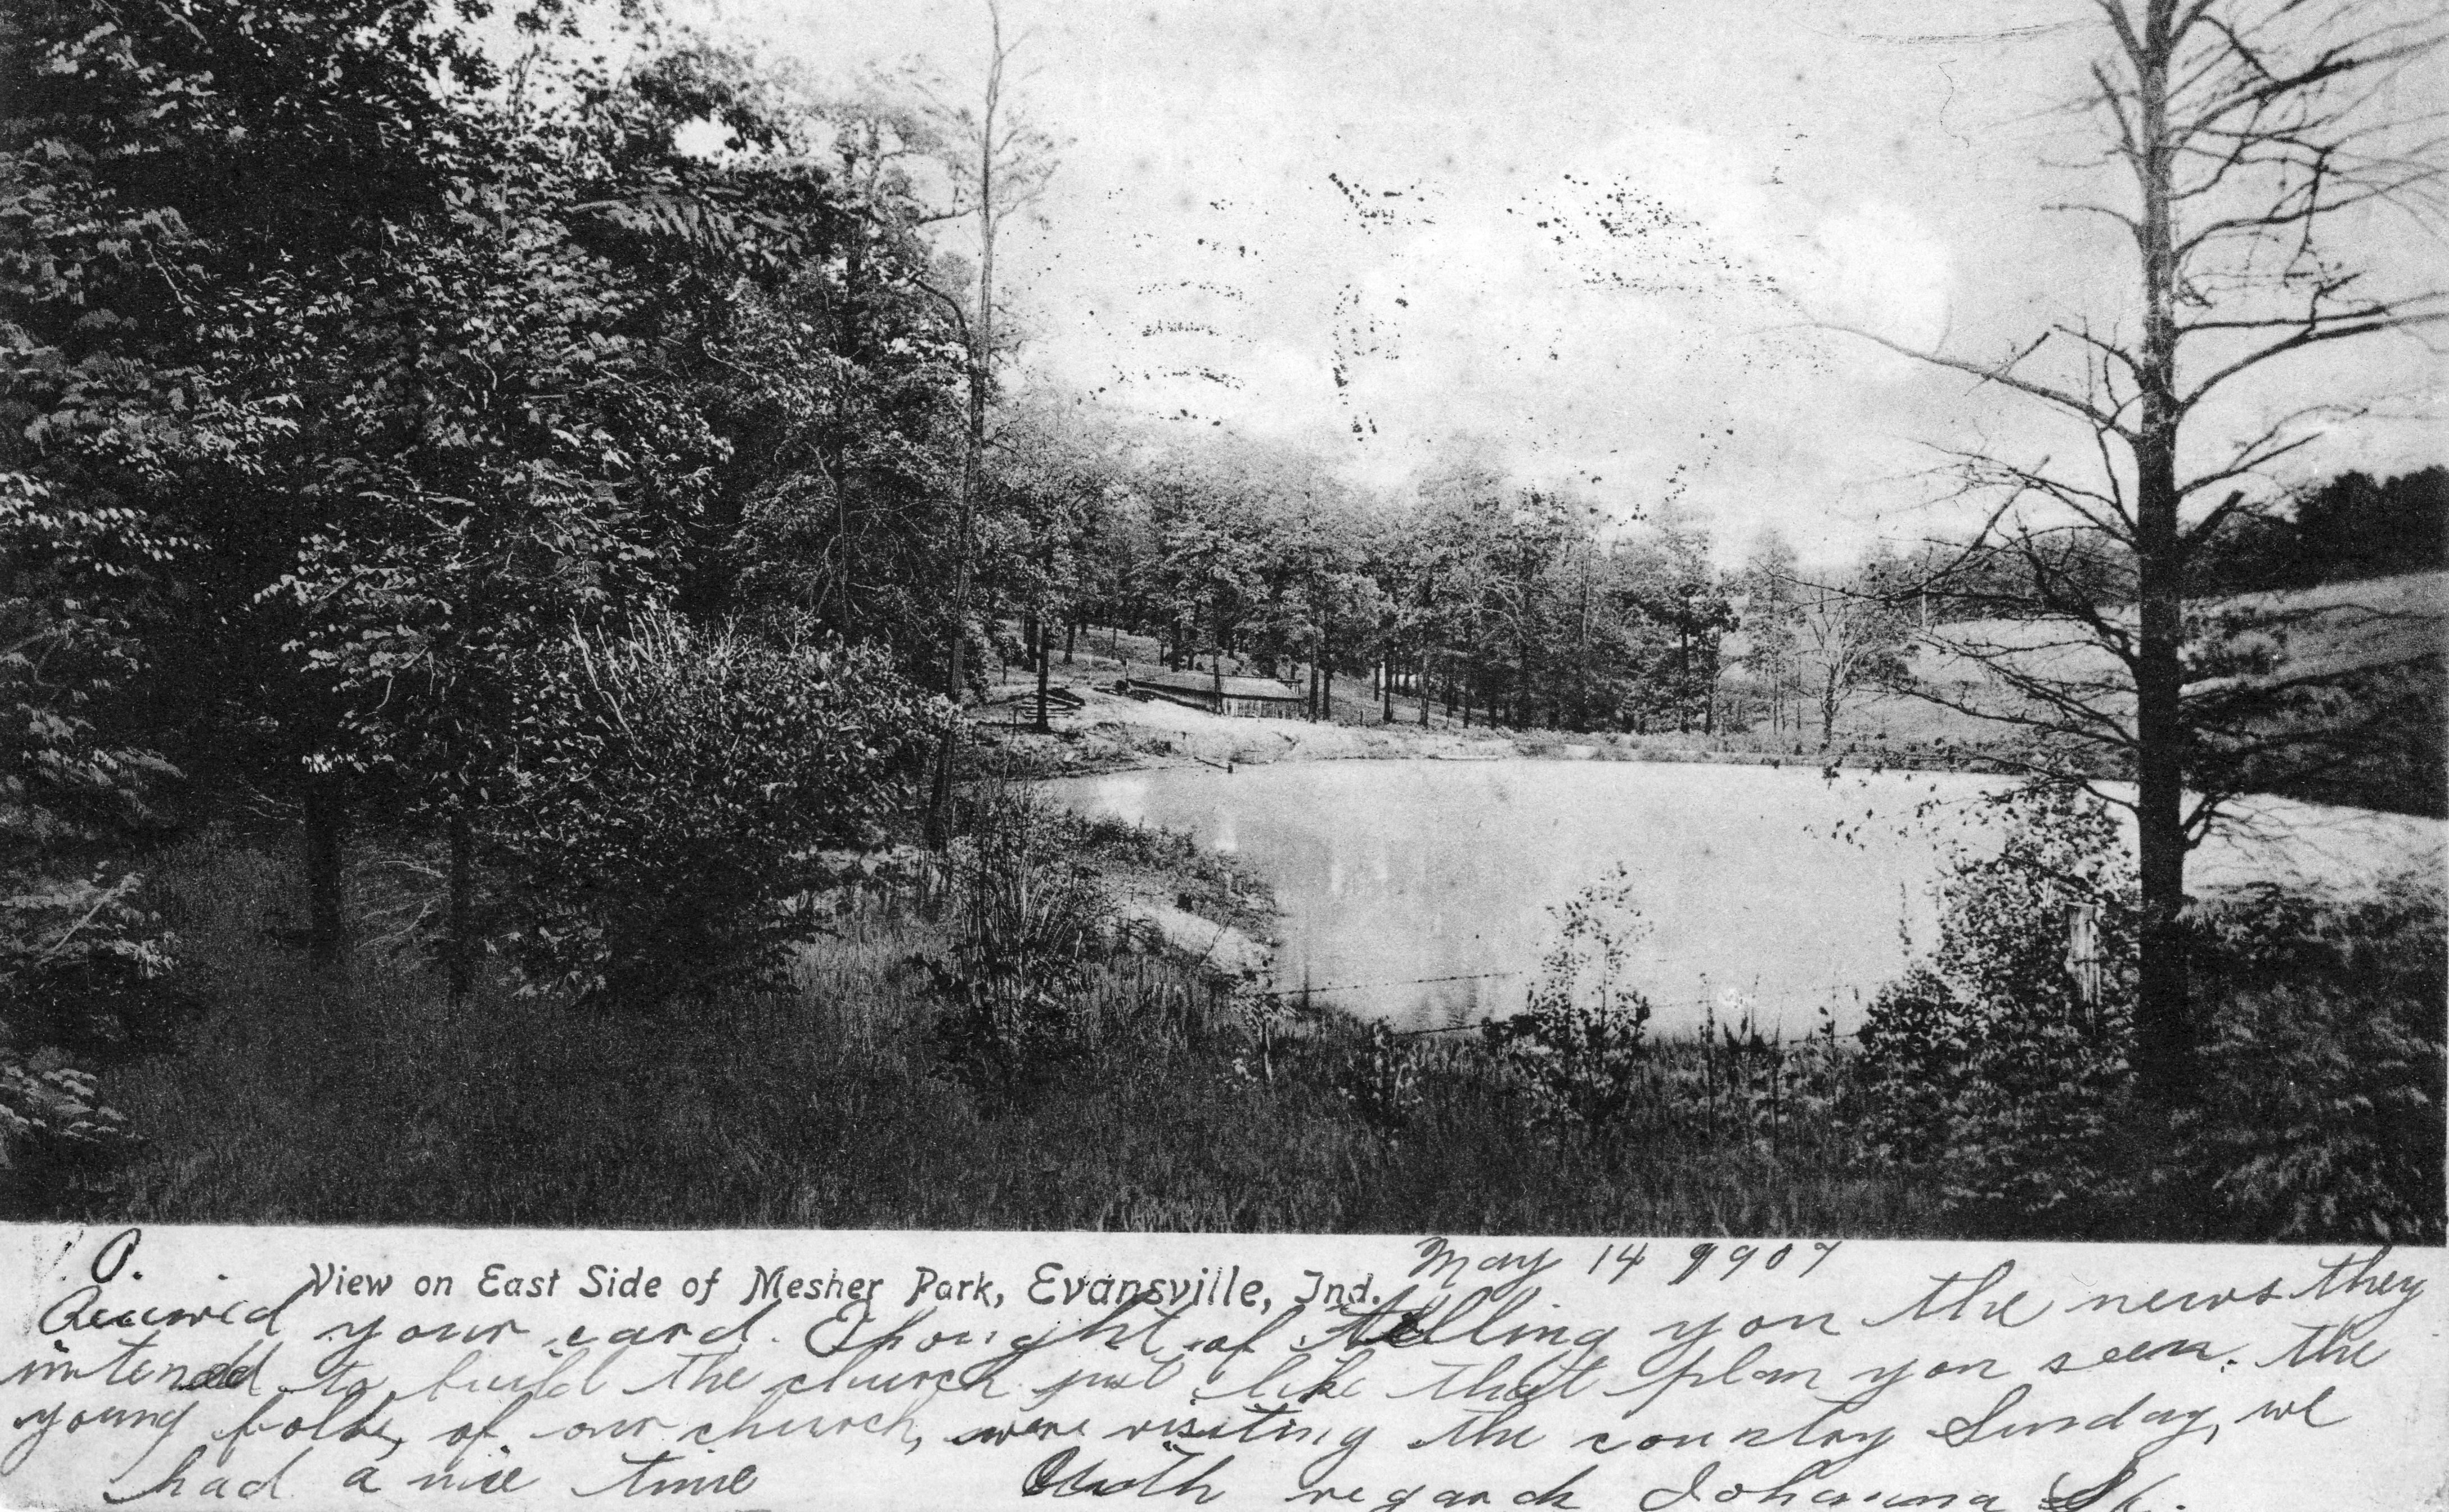 O.
View on East Side of Mesher Park, Evansville, Ind.
May 14 1907
Received your card. Thought of telling you the news they
intended to build the church just like that plan you seen. the
young folks, of our church, were visiting the country Sunday, we
had a nice time With regards Johanna